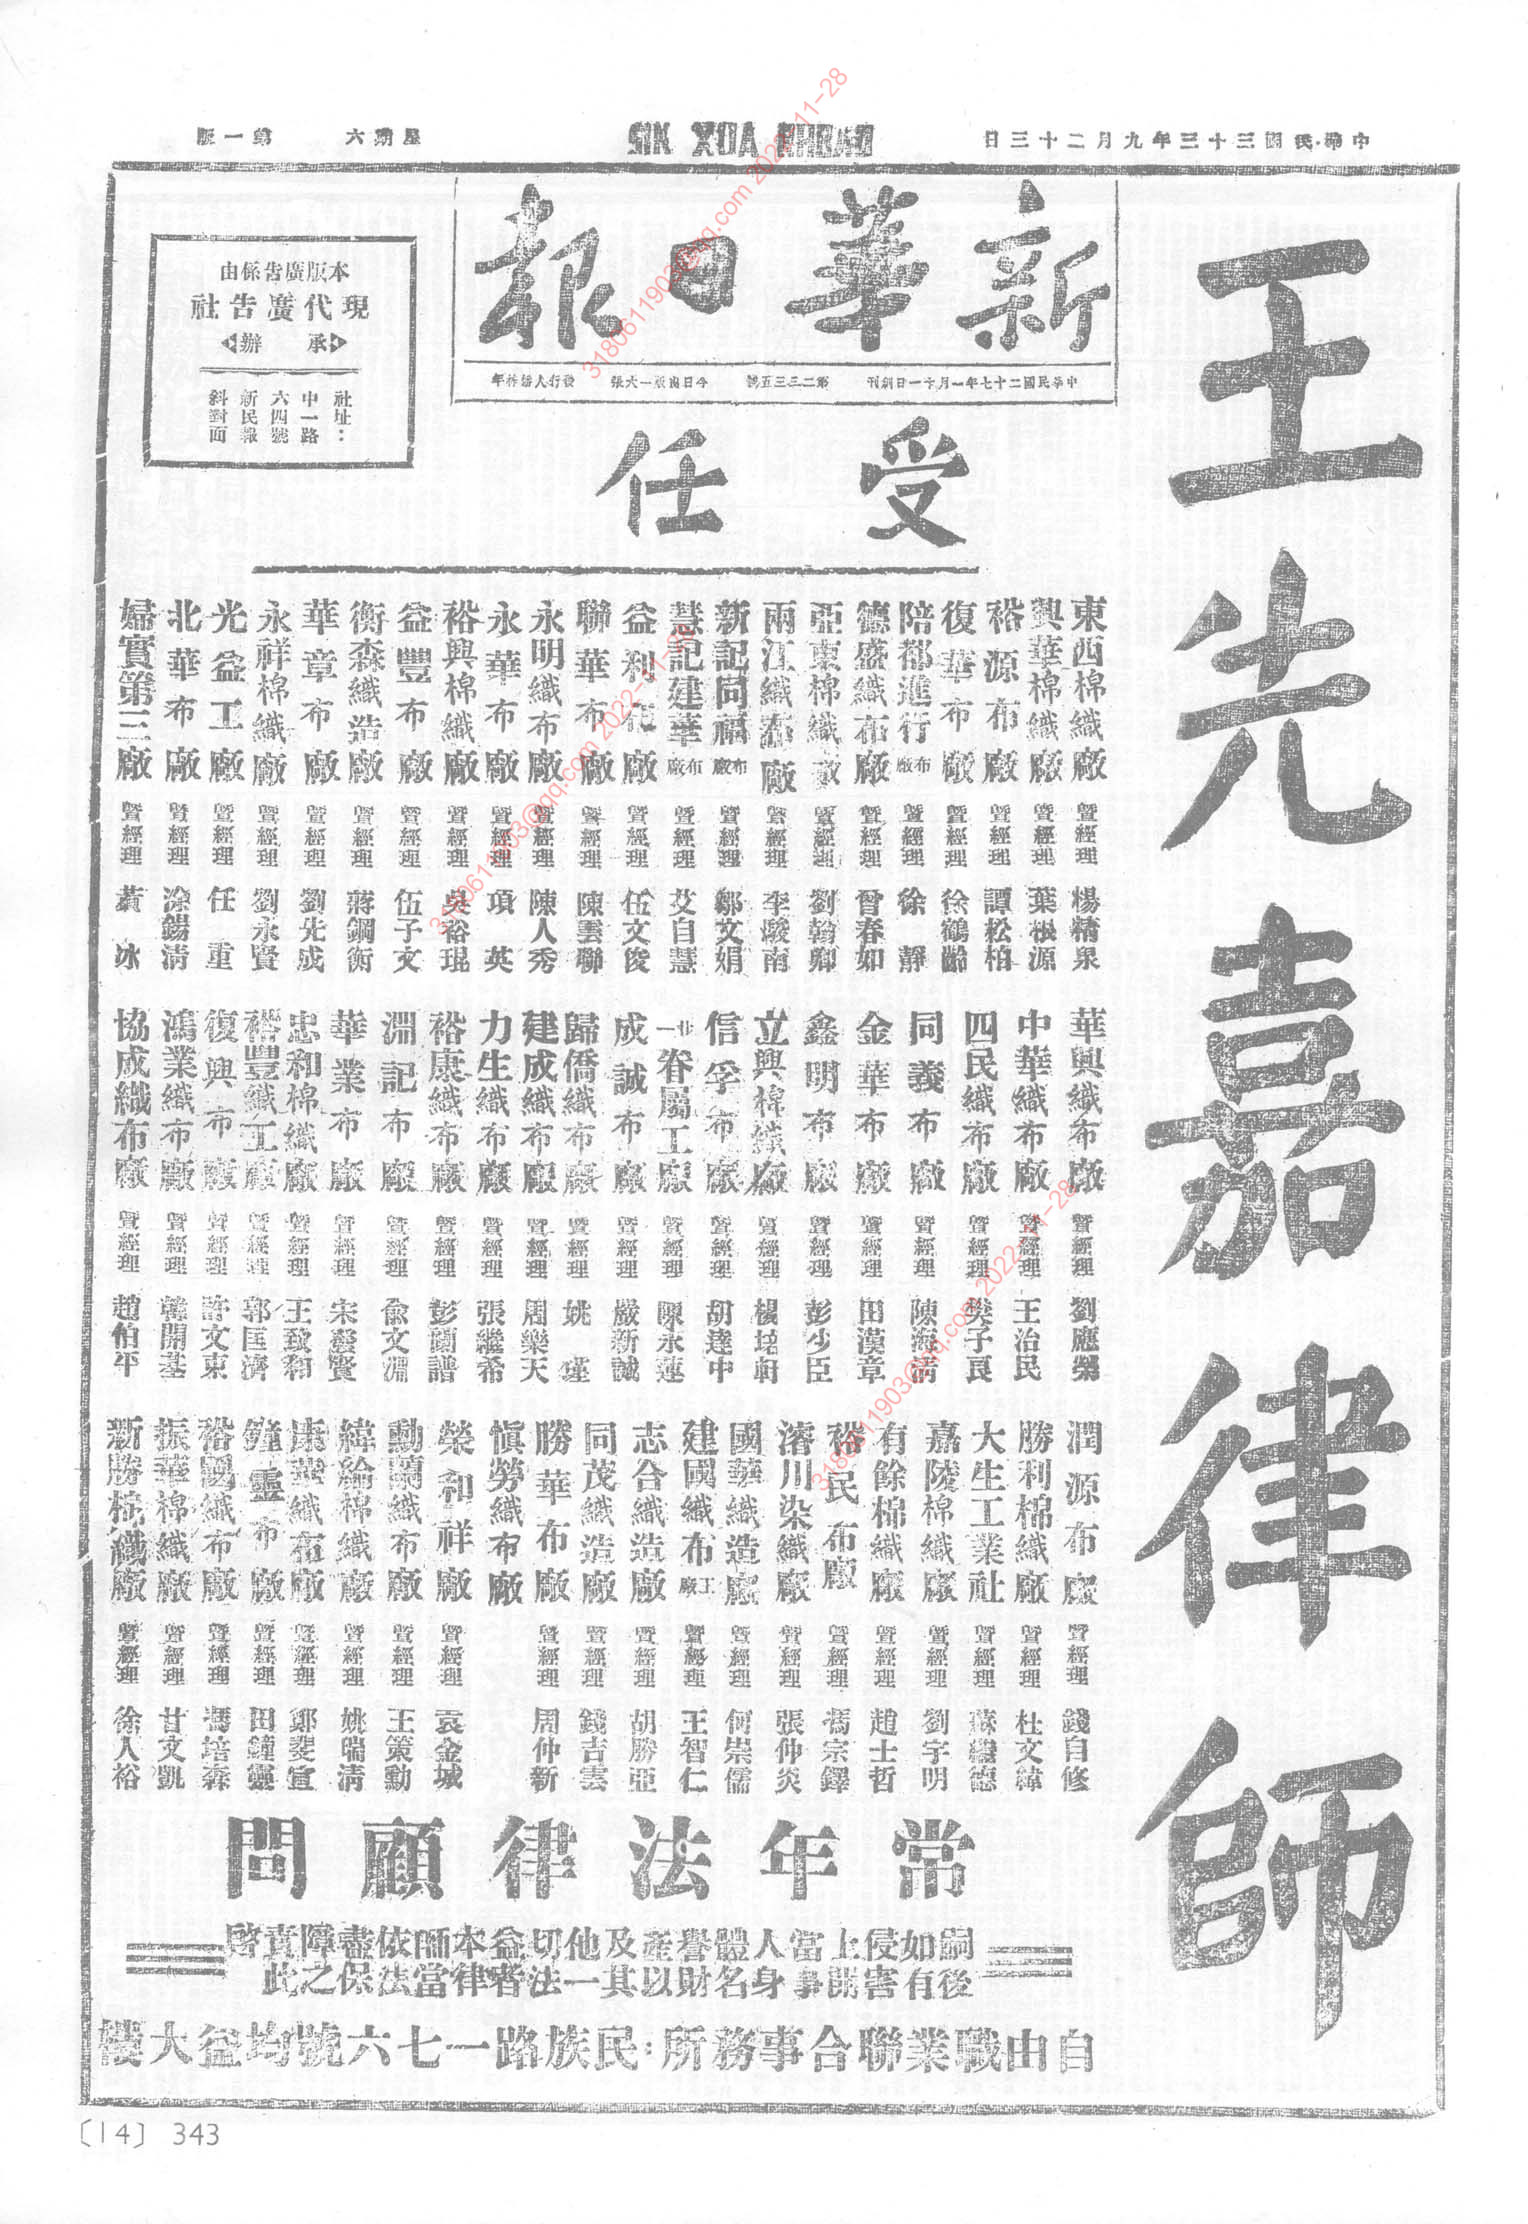 中華民國三十三年九月二十三日
SIN XUA RHBAO
星期六　第一版
新華日報
中華民國二十七年一月十一日創刊　第二三三五號　今日出版一大張　發行人潘梓年
本版廣告係由
現代廣告社
承辦
社址：
中一路
六四號
新民報
斜對面
王先嘉律師
受任
東西棉織廠 暨經理 楊精泉
興華棉織廠 暨經理 葉根源
裕源布廠 暨經理 譚松柏
復華布廠 暨經理 徐鶴齡
陪都進行布廠 暨經理 徐靜
德盛織布廠 暨經理 曾春如
亞東棉織廠 暨經理 劉翰卿
兩江織布廠 暨經理 李駿南
新記同福布廠 暨經理 鄒文娟
慧記建華布廠 暨經理 艾自慧
益利布廠 暨經理 伍文俊
聯華布廠 暨經理 陳雲聯
永明織布廠 暨經理 陳人秀
永華布廠 暨經理 項英
裕興棉織廠 暨經理 吳裕琨
益豐布廠 暨經理 伍子文
衡森織造廠 暨經理 蔣鋼衡
華章布廠 暨經理 劉先成
永祥棉織廠 暨經理 劉永賢
光益工廠 暨經理 任重
北華布廠 暨經理 涂錫清
婦實第三廠 暨經理 黃冰
華興織布廠 暨經理 劉應榮
中華織布廠 暨經理 王治民
四民織布廠 暨經理 樊子良
同義布廠 暨經理 陳海清
金華布廠 暨經理 田漢章
鑫明布廠 暨經理 彭少臣
立興棉織廠 暨經理 楊培軒
信孚布廠 暨經理 胡達中
眷屬工廠 暨經理 陳永蓮
成誠布廠 暨經理 嚴新誠
歸僑織布廠 暨經理 姚
建成織布廠 暨經理 周樂天
力生織布廠 暨經理 張繼希
裕康織布廠 暨經理 彭蘭譜
淵記布廠 暨經理 俞文淵
華業布廠 暨經理 宋慶賢
忠和棉織廠 暨經理 王致和
裕豐織工廠 暨經理 郭匡濟
復興布廠 暨經理 許文東
鴻業織布廠 暨經理 韓開基
協成織布廠 暨經理 趙伯平
潤源布廠 暨經理 錢自修
勝利棉織廠 暨經理 杜文緯
大生工業社 暨經理 蘇繼德
嘉陵棉織廠 暨經理 劉宇明
有餘棉織廠 暨經理 趙士哲
裕民布廠 暨經理 馮宗鐸
濬川染織廠 暨經理 張仲炎
國華織造廠 暨經理 何崇儒
建國織布工廠 暨經理 王智仁
志合織造廠 暨經理 胡勝亞
同茂織造廠 暨經理 錢吉雲
勝華布廠 暨經理 周仲新
慎勞織布廠
榮和祥廠 暨經理 袁金城
勳蘭織布廠 暨經理 王策勳
緯綸棉織廠 暨經理 姚瑞清
康斐織布廠 暨經理 鄭斐宣
鐘靈布廠 暨經理 田鐘靈
裕國織布廠 暨經理 馮培森
振華棉織廠 暨經理 甘文凱
新勝棉織廠 暨經理 徐人裕
常年法律顧問
嗣後如有侵害上開當事人身體名譽財產以及其他一切法益者本律師當依法盡保障之責此啓
自由職業聯合事務所：民族路一七六號均益大樓
〔14〕 343
3180611903@qq.com 2022-11-28
3180611903@qq.com 2022-11-28
3180611903@qq.com 2022-11-28